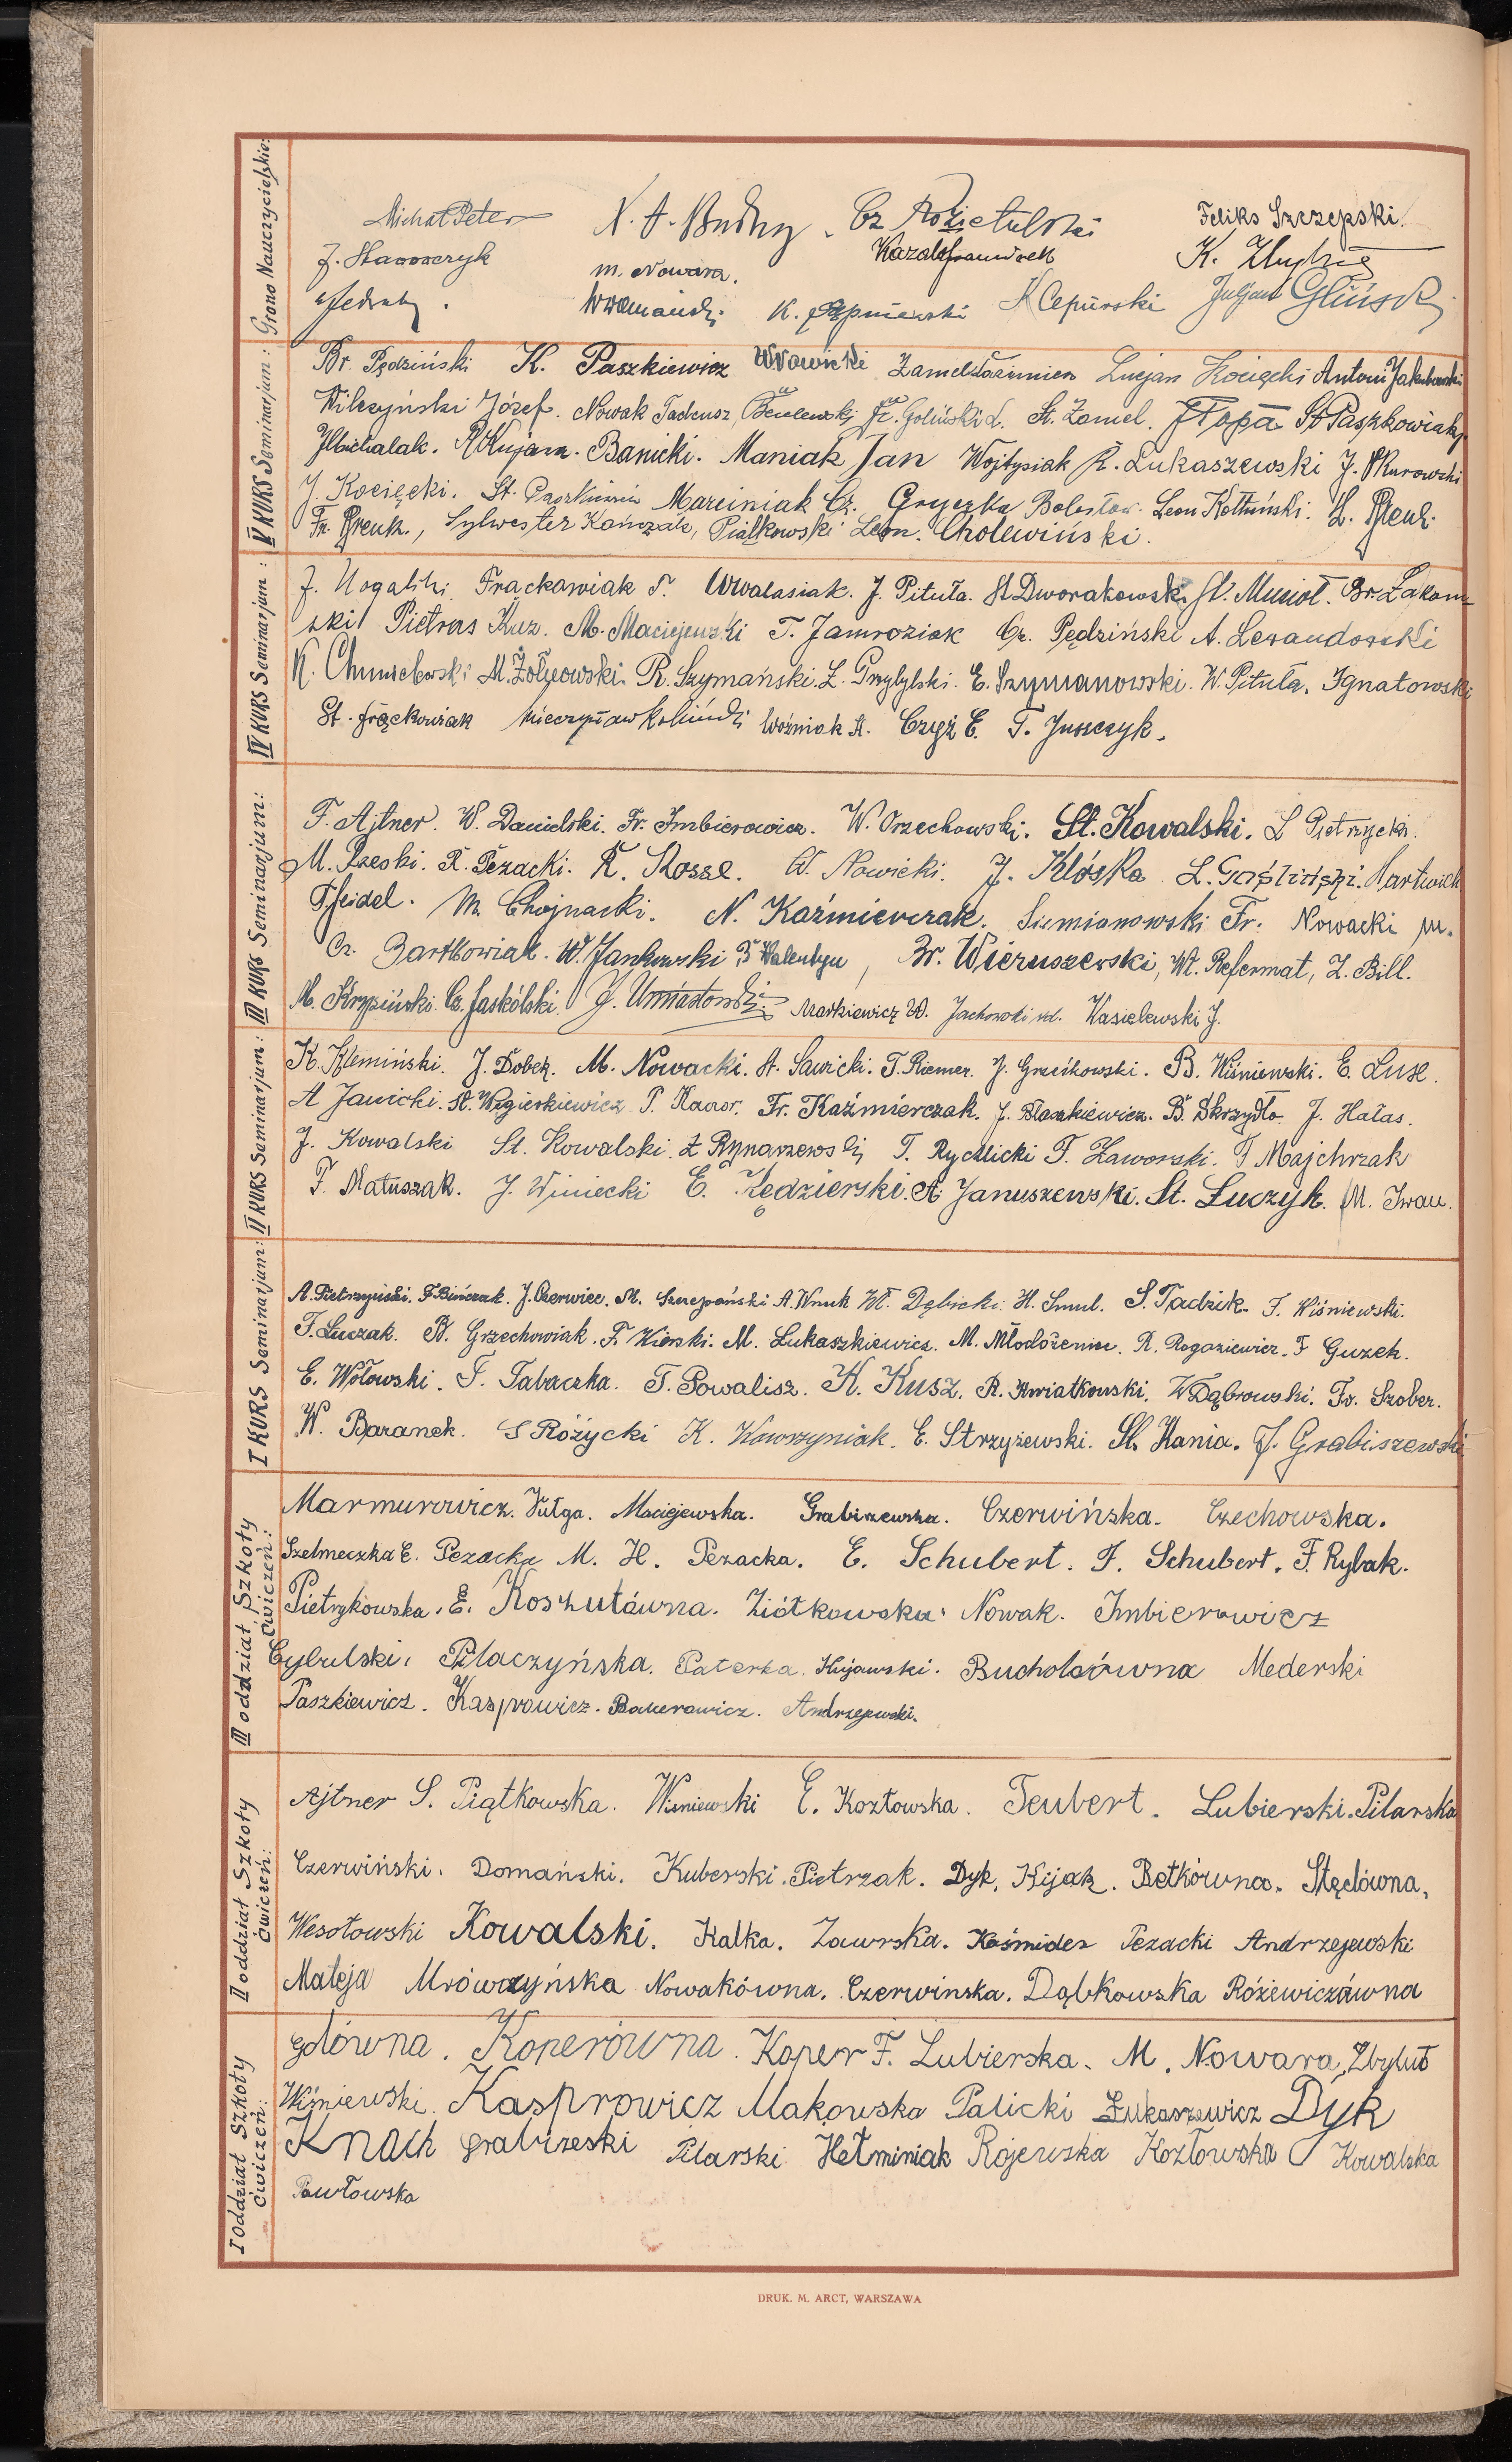 Grono Nauczycielskie:
Michał Peter Cz Feliks Szczepski.
m. Nowara. K.
K. Juljan Gliński
V KURS Seminarjum:
Br. Pędziński K. Paszkiewicz WNowicki Lucjan Kocięcki Antoni Jakubowski
Wilczyński Józef. Nowak Tadeusz, Fr. Goliński L. St. Zamel. St Paszkowiak
Banicki. Maniak Jan Wojtysiak R. Łukaszewski J. Skurowski
J. Kocięcki. St. Paszkiewicz Marciniak Cz. Gryczka Bolesław. Leon Kołtuński. L.
Fr. Sylwester Kończak, Piątkowski Leon. Cholewiński.
IV KURS Seminarjum:
J. Nogalski. Frąckowiak T. WWalasiak. J. Pituła. St Dworakowski St. Musioł. Br. Łakom-
ski Pietras Kaz. M. Maciejewski T. Jamroziak Cz. Pędziński A. Lewandowski
K. Chmielewski M. Żółciowski. R. Szymański. L. Przybylski. E. Szymanowski. W. Pituła. Ignatowski
St. Frąckowiak Mieczysław Woźniak A. Czyż E. T. Juszczyk.
III KURS Seminarjum:
F. Ajtner. W. Danielski. Fr. Imbierowicz. W. Orzechowski. St. Kowalski. L Pietrzycki.
M. R. Pezacki. K. Kossel. W. Nowicki. J. Klóska L. Gośliński. Hartwich
T. Seidel. M. Chojnacki. N. Kaźmierczak. Siemianowski Fr. Nowacki M.
Cz. Bartkowiak. W. Jankowski Walentyn, Br. Wieruszewski, Wł. Refermat, Z. Bill.
M. Krzpiński. Cz. Jaskólski. J. Umiastowski. Markiewicz W. Jachowski Wł. Wasielewski J.
II KURS Seminarjum:
K. Klemiński. J. Dobek. M. Nowacki. A. Sawicki. T. Riemer. J. Grześkowski. B. Wiśniewski. E. Luse.
A Janicki. St. Węgierkiewicz P. Fr. Kaźmierczak. J. Błaszkiewicz. B. Skrzydło. J. Hałas.
J. Kowalski St. Kowalski. Z Rynarzewski T. Rychlicki F. Zaworski. J Majchrzak
F. Matuszak. J. Winiecki E. Kędzierski. A. Januszewski. St. Łuczyk. M. Iwan.
I KURS Seminarjum:
A. Pietrzyński. F. Bińczak. J. Czerwiec. M. Szczepański A. Wnuk Wł. Dębicki. H. Smul. S. Tadzik. F. Wiśniewski.
F. Łuczak. B. Grzechowiak. F. Kierski. M. Łukaszkiewicz. M. Młodożeniec. R. Rogoziewicz. F Guzek.
E. Wołowski. F. Tabaczka. T. Powalisz. K. Kusz. R. Kwiatkowski. W Dąbrowski. Fr. Szober.
W. Baranek. S Różycki K. Wawrzyniak. E. Strzyżewski. St. Kania. J. Grabiszewski
III oddział Szkoły Ćwiczeń:
Marmurowicz. Fułga. Maciejewska. Grabiszewska. Czerwińska. Czechowska.
Szelmeczka E. Pezacka M. H. Pezacka. E. Schubert. F. Schubert. F. Rybak.
Pietrzykowska. E. Koszutówna. Ziółkowska. Nowak. Imbierowicz
Cybulski. Pilaczyńska. Paterka. Kujawski. Bucholcówna Mederski
Paszkiewicz. Kasprowicz. Bakerowicz. Andrzejewski.
II oddział Szkoły Ćwiczeń:
Ajtner S. Piątkowska. Wiśniewski E. Kozłowska. Teubert. Lubierski. Pilarska
Czerwiński. Domański. Kuberski. Pietrzak. Dyk. Kijak. Betkówna. Stęclówna,
Wesołowski Kowalski. Kalka. Zawrska. Kośmider Pezacki Andrzejewski
Mateja Mrówczyńska Nowakówna. Czerwinska. Dąbkowska Różewiczówna
I oddział Szkoły Ćwiczeń:
Golówna. Koperówna. Koper F. Lubierska. M. Nowara, Zbylut
Wiśniewski. Kasprowicz Makowska Palicki Łukaszewicz Dyk
Knach Grabrzeski Pilarski Hełminiak Rojewska Kozłowska Kowalska
Pawłowska
DRUK. M. ARCT, WARSZAWA